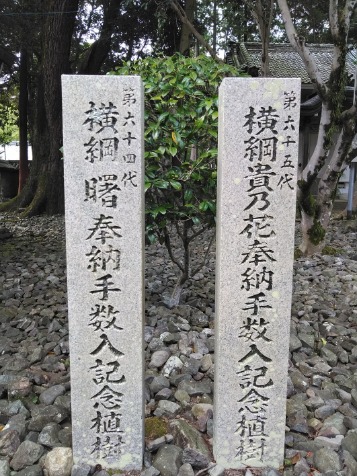 第六十五代
横綱貴乃花奉納手数入記念植樹
第六十四代
横綱曙奉納手数入記念植樹